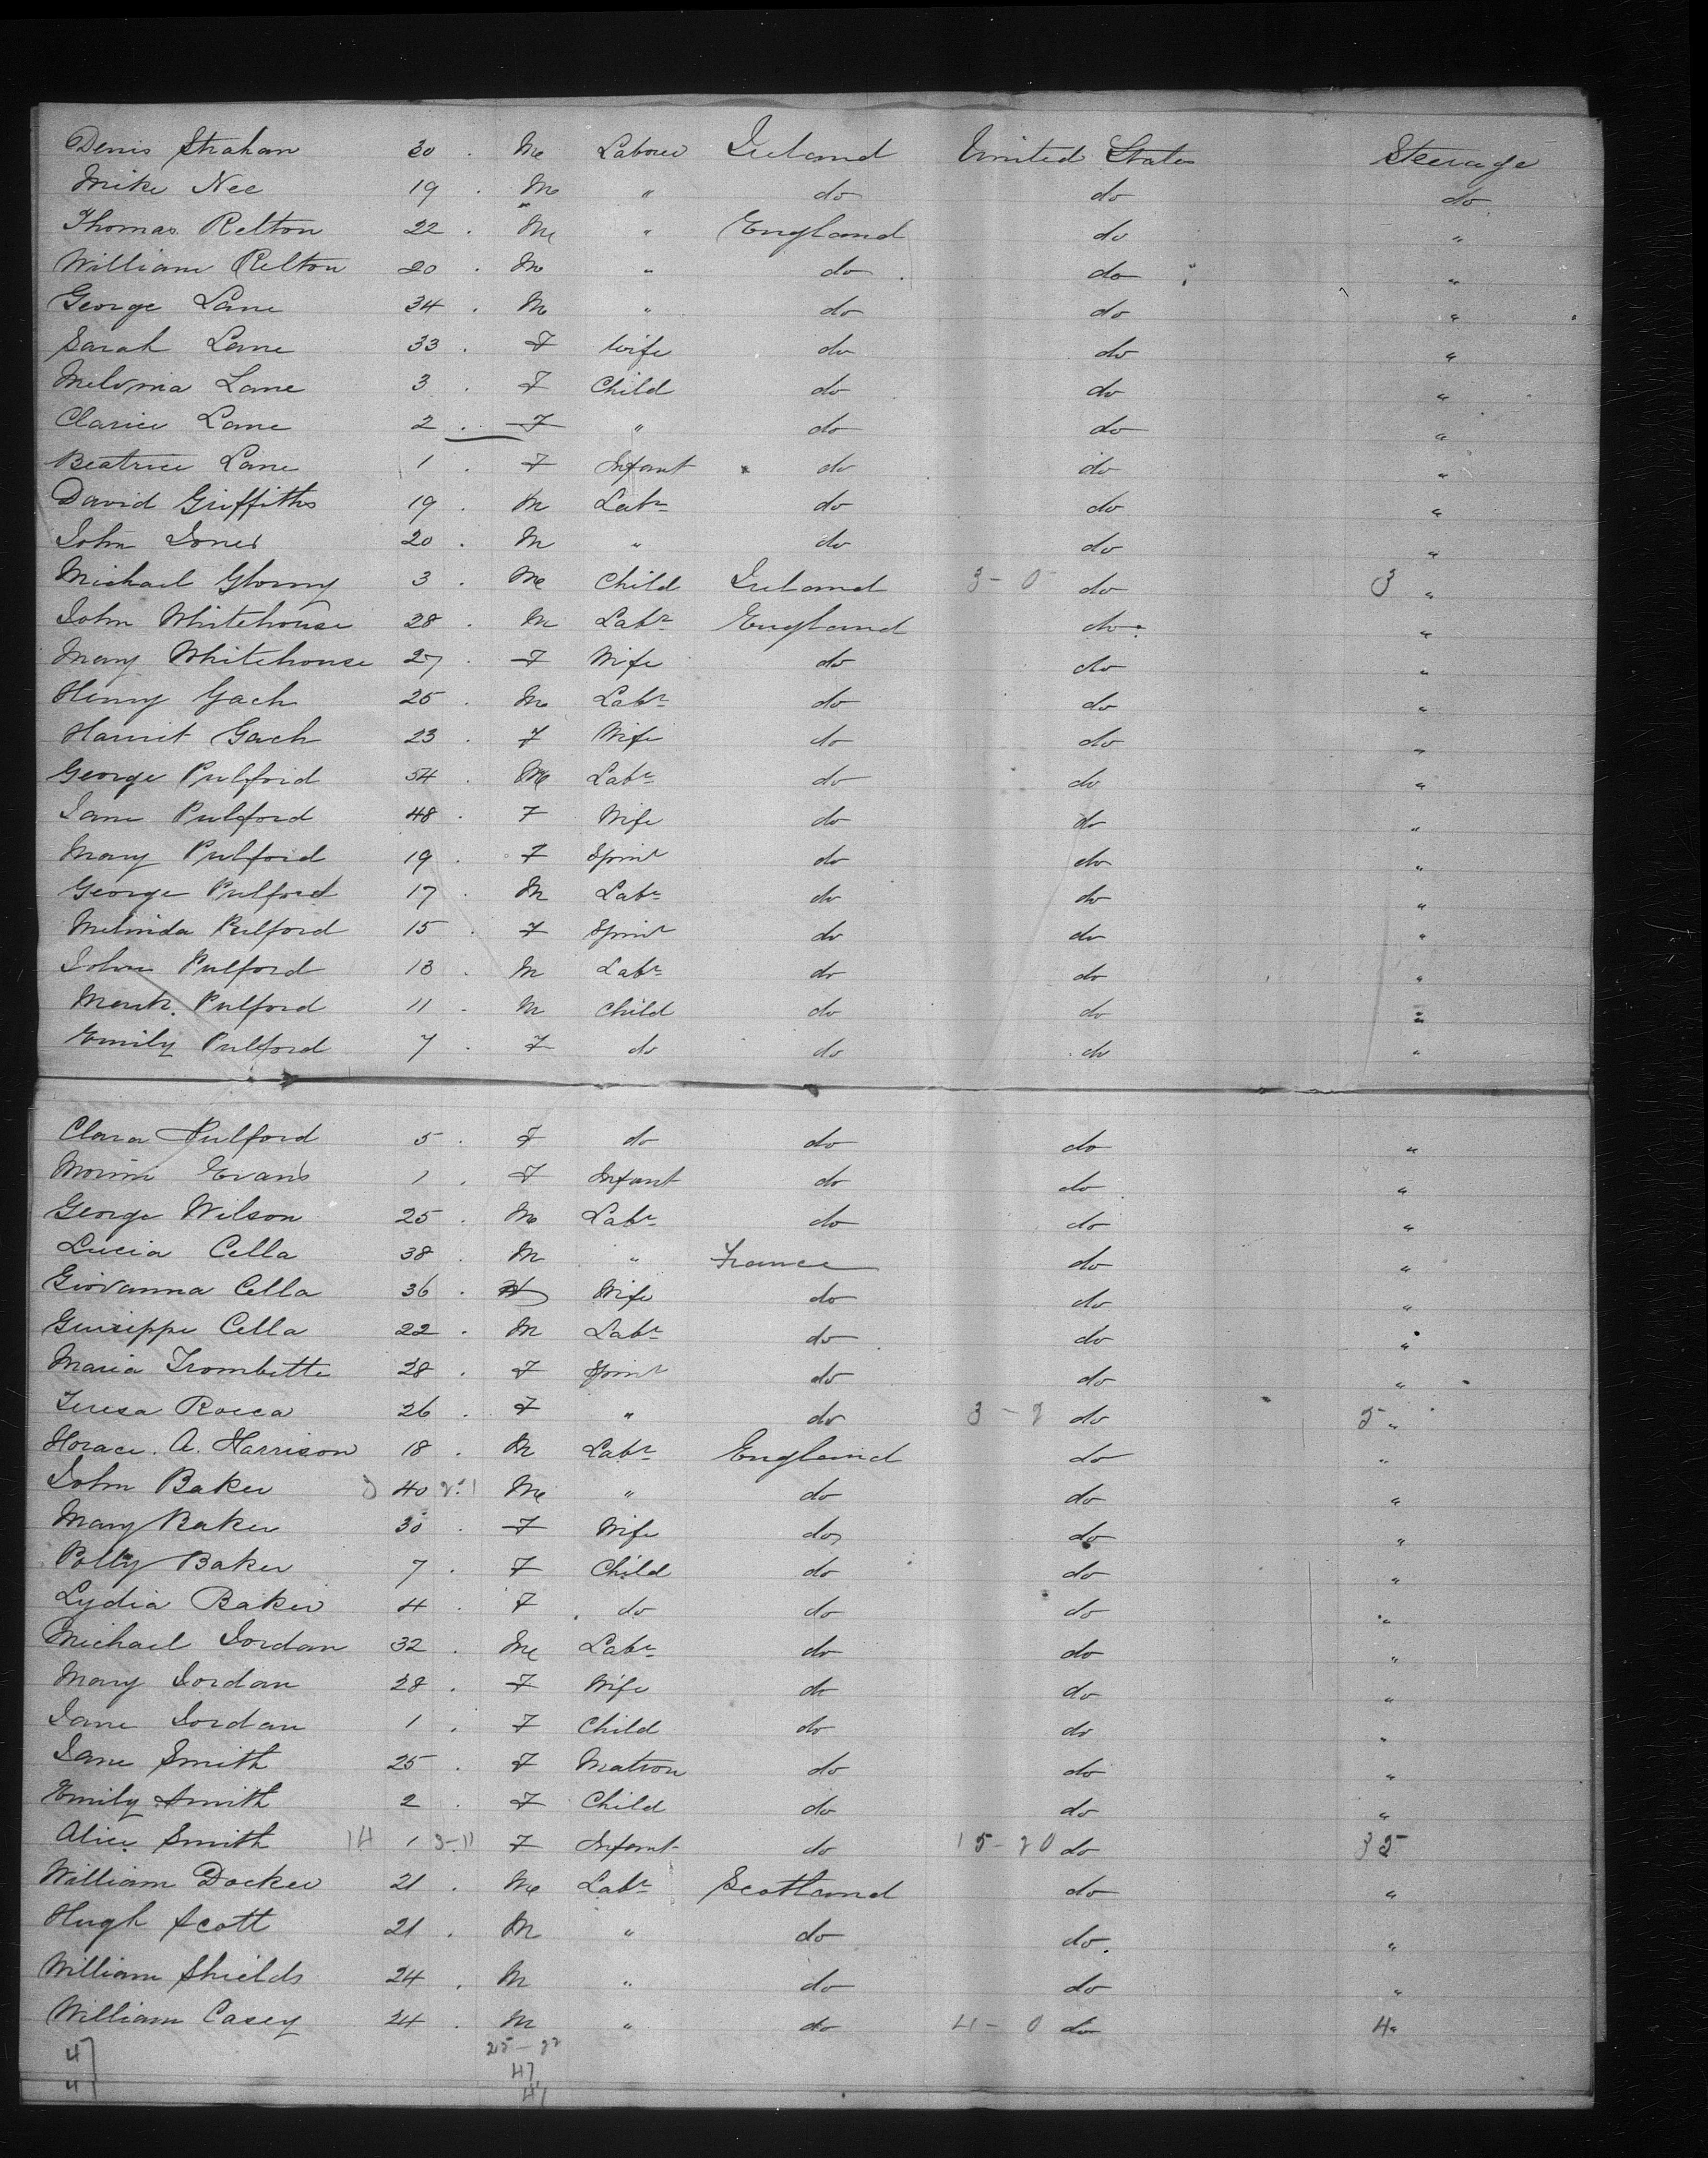 Denis Strahan 30 . M Labourer Ireland United States Steerage
Mike Nee 19 . M " do do do
Thomas Relton 22 . M " England do "
William Relton 20 . M " do do "
George Lane 34 . M " do do "
Sarah Lane 33 . F Wife do do "
Melvina Lane 3 . F Child do do "
Clarice Lane 2 . F " do do "
Beatrice Lane 1 . F Infant do do "
David Griffiths 19 . M Labr do do "
John Jones 20 . M " do do "
Michael 3 . M Child Ireland 3 - 0 do 3 "
John Whitehouse 28 . M Labr England do "
Mary Whitehouse 27 . F Wife do do "
Henry Gach 25 . M Labr do do "
Harriet Gach 23 . F Wife do do "
George Pulford 54 . M Labr do do "
Jane Pulford 48 . F Wife do do "
Mary Pulford 19 . F Spinr do do "
George Pulford 17 . M Labr do do "
Melinda Pulford 15 . F Spinr do do "
John Pulford 13 . M Labr do do "
Mark Pulford 11 . M Child do do "
Emily Pulford 7 . F do do do "
Clara Pulford 5 . F do do do "
Evans 1 . F Infant do do "
George Wilson 25 . M Labr do do "
Lucia Cella 38 . M " France do "
Giovanna Cella 36 . Wife do do "
Guiseppe Cella 22 . M Labr do do "
Maria Trombette 28 . F Spinr do do "
Teresa Rocca 26 . F " do 3 - 2 do 5 "
Horace. A. Harrison 18 . M Labr England do "
John Baker 40 M " do do "
Mary Baker 30 . F Wife do do "
Polly Baker 7 . F Child do do "
Lydia Baker 4 . F do do do "
Michael Jordan 32 . M Labr do do "
Mary Jordan 28 . F Wife do do "
Jane Jordan 1 . F Child do do "
Jane Smith 25 . F Matron do do "
Emily Smith 2 . F Child do do "
Alice Smith 14 1 3-11 F Infant do 15 - 20 do 35
William Docker 21 . M Labr Scotland do "
Hugh Scott 21 . M " do do "
William Shields 24 . M " do do "
William Casey 24 . M " do 4 - 0 do 4 "
47 25 - 22
47
47